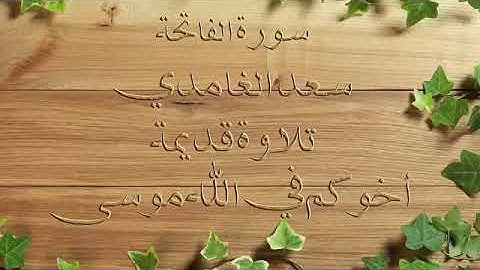 سورة الفاتحة
سعد الغامدي
تلاوة قديمة
أخوكم في الله موسى